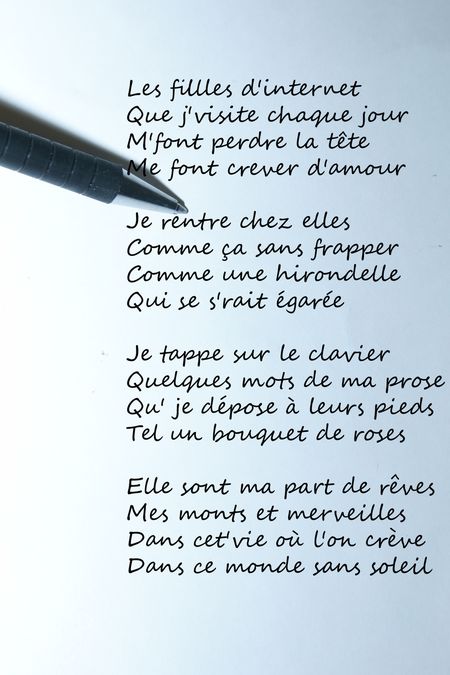 Les fillles d'internet
Que j'visite chaque jour
M'font perdre la tête
Me font crever d'amour
Je rentre chez elles
Comme ça sans frapper
Comme une hirondelle
Qui se s'rait égarée
Je tappe sur le clavier
Quelques mots de ma prose
Qu' je dépose à leurs pieds
Tel un bouquet de roses
Elle sont ma part de rêves
Mes monts et merveilles
Dans cet'vie où l'on crève
Dans ce monde sans soleil